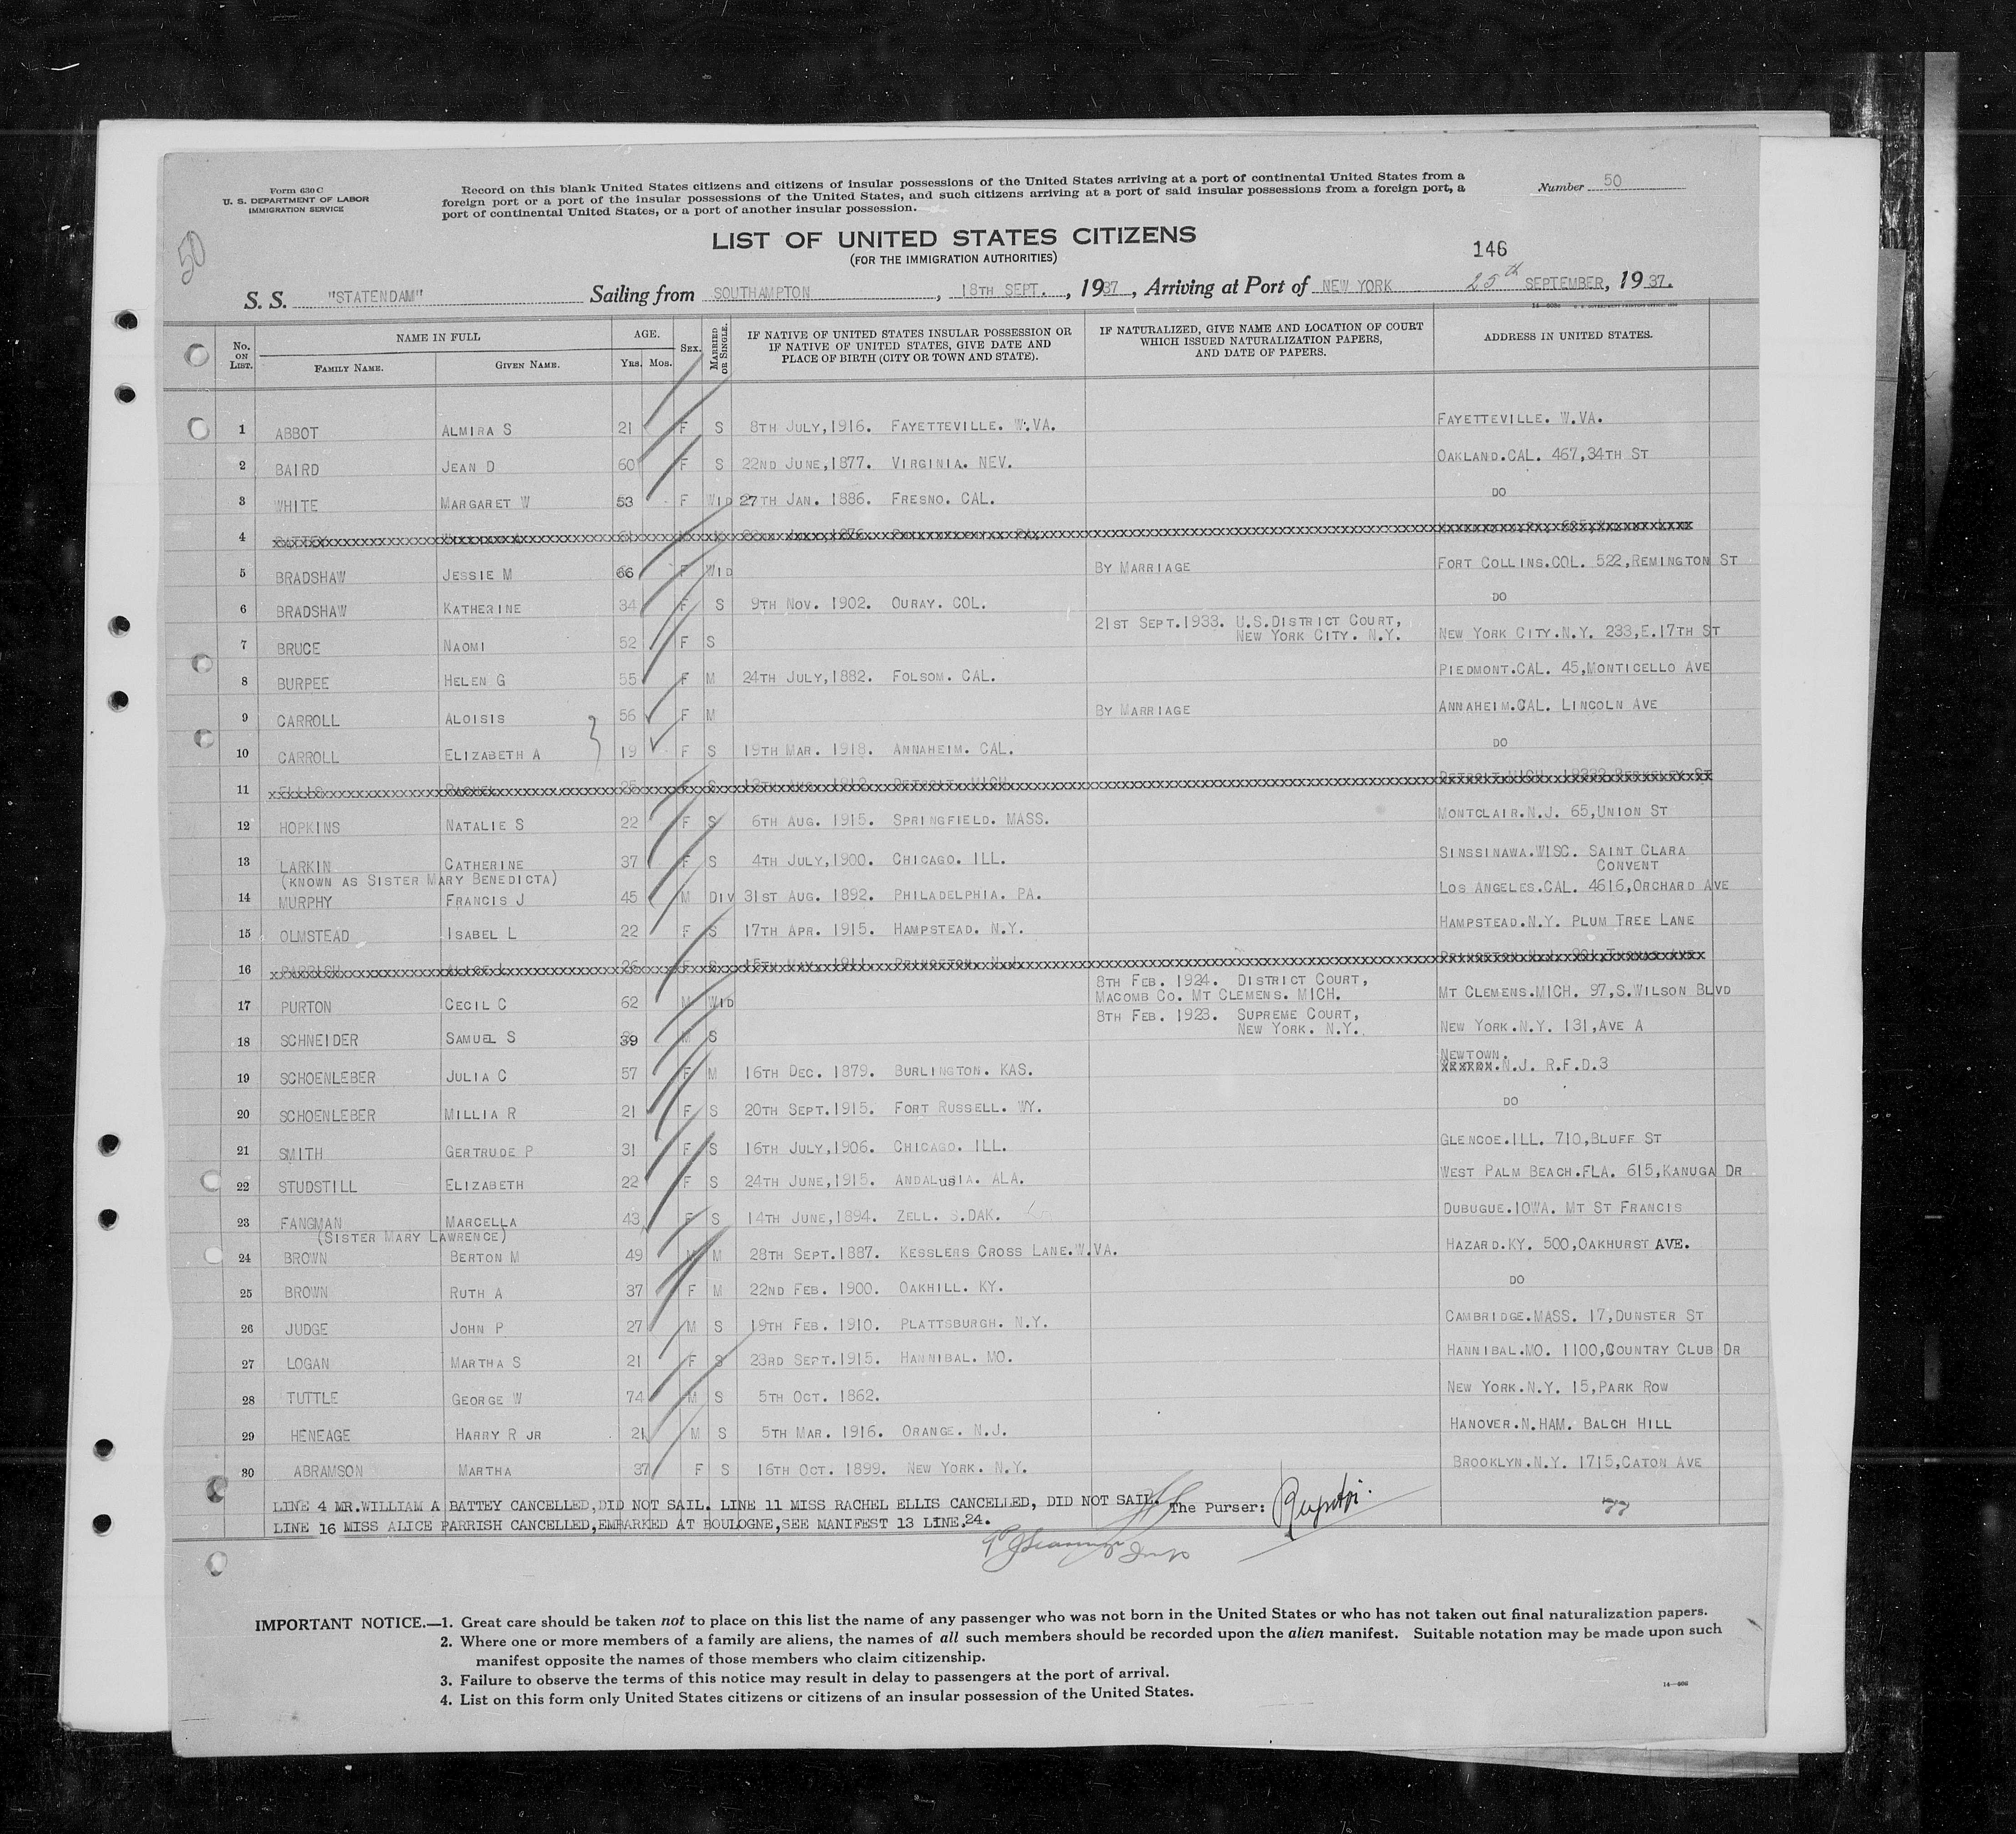 Form 630 C
U. S. DEPARTMENT OF LABOR
IMMIGRATION SERVICE
Record on this blank United States citizens and citizens of insular possessions of the United States arriving at a port of continental United States from a
foreign port or a port of the insular possessions of the United States, and such citizens arriving at a port of said insular possessions from a foreign port, a
port of continental United States, or a port of another insular possession.
Number 50
50
LIST OF UNITED STATES CITIZENS
(FOR THE IMMIGRATION AUTHORITIES)
146
S. S. "STATENDAM" Sailing from SOUTHAMPTON, 18TH SEPT., 1937, Arriving at Port of NEW YORK 25th SEPTEMBER, 1937.
No. ON LIST. NAME IN FULL FAMILY NAME. GIVEN NAME. AGE. YRS. MOS. SEX. MARRIED OR SINGLE. IF NATIVE OF UNITED STATES INSULAR POSSESSION OR IF NATIVE OF UNITED STATES, GIVE DATE AND PLACE OF BIRTH (CITY OR TOWN AND STATE). IF NATURALIZED, GIVE NAME AND LOCATION OF COURT WHICH ISSUED NATURALIZATION PAPERS, AND DATE OF PAPERS. ADDRESS IN UNITED STATES.
1 ABBOT ALMIRA S 21 F S 8TH JULY,1916. FAYETTEVILLE. W.VA. FAYETTEVILLE. W.VA.
2 BAIRD JEAN D 60 F S 22ND JUNE,1877. VIRGINIA. NEV. OAKLAND.CAL. 467,34TH ST
3 WHITE MARGARET W 53 F WID 27TH JAN. 1886. FRESNO. CAL. DO
4
5 BRADSHAW JESSIE M 66 F WID BY MARRIAGE FORT COLLINS.COL. 522,REMINGTON ST
6 BRADSHAW KATHERINE 34 F S 9TH NOV. 1902. OURAY. COL. DO
7 BRUCE NAOMI 52 F S 21ST SEPT.1933. U.S.DISTRICT COURT, NEW YORK CITY. N.Y. NEW YORK CITY.N.Y. 233,E.17TH ST
8 BURPEE HELEN G 55 F M 24TH JULY,1882. FOLSOM. CAL. PIEDMONT.CAL. 45,MONTICELLO AVE
9 CARROLL ALOISIS 56 F M BY MARRIAGE ANNAHEIM.CAL. LINCOLN AVE
10 CARROLL ELIZABETH A 19 F S 19TH MAR. 1918. ANNAHEIM. CAL. DO
11 ELLIS RACHEL 25 F S 13TH AUG. 1912. DETROIT. MICH
12 HOPKINS NATALIE S 22 F S 6TH AUG. 1915. SPRINGFIELD. MASS. MONTCLAIR.N.J. 65,UNION ST
13 LARKIN CATHERINE 37 F S 4TH JULY,1900. CHICAGO. ILL. SINSSINAWA.WISC. SAINT CLARA CONVENT
(KNOWN AS SISTER MARY BENEDICTA)
14 MURPHY FRANCIS J 45 M DIV 31ST AUG. 1892. PHILADELPHIA. PA. LOS ANGELES.CAL. 4616,ORCHARD AVE
15 OLMSTEAD ISABEL L 22 F S 17TH APR. 1915. HAMPSTEAD. N.Y. HAMPSTEAD.N.Y. PLUM TREE LANE
16 PARRISH ALICE L 26 F S 15TH MAY. 1911. PRINCETON. N.J.
17 PURTON CECIL C 62 M WID 8TH FEB. 1924. DISTRICT COURT, MACOMB CO. MT CLEMENS. MICH. MT CLEMENS.MICH. 97,S.WILSON BLVD
18 SCHNEIDER SAMUEL S 39 M S 8TH FEB. 1923. SUPREME COURT, NEW YORK. N.Y. NEW YORK.N.Y. 131,AVE A
19 SCHOENLEBER JULIA C 57 F M 16TH DEC. 1879. BURLINGTON. KAS. NEWTOWN. N.J. R.F.D.3
20 SCHOENLEBER MILLIA R 21 F S 20TH SEPT.1915. FORT RUSSELL. WY. DO
21 SMITH GERTRUDE P 31 F S 16TH JULY,1906. CHICAGO. ILL. GLENCOE.ILL. 710,BLUFF ST
22 STUDSTILL ELIZABETH 22 F S 24TH JUNE,1915. ANDALUSIA. ALA. WEST PALM BEACH.FLA. 615,KANUGA DR
23 FANGMAN MARCELLA 43 F S 14TH JUNE,1894. ZELL. S.DAK. DUBUGUE.IOWA. MT ST FRANCIS
(SISTER MARY LAWRENCE)
24 BROWN BERTON M 49 M M 28TH SEPT.1887. KESSLERS CROSS LANE.W.VA. HAZARD.KY. 500,OAKHURST AVE.
25 BROWN RUTH A 37 F M 22ND FEB. 1900. OAKHILL. KY. DO
26 JUDGE JOHN P 27 M S 19TH FEB. 1910. PLATTSBURGH. N.Y. CAMBRIDGE.MASS. 17,DUNSTER ST
27 LOGAN MARTHA S 21 F S 23RD SEPT.1915. HANNIBAL. MO. HANNIBAL.MO. 1100,COUNTRY CLUB DR
28 TUTTLE GEORGE W 74 M S 5TH OCT. 1862. NEW YORK.N.Y. 15,PARK ROW
29 HENEAGE HARRY R JR 21 M S 5TH MAR. 1916. ORANGE. N.J. HANOVER.N.HAM. BALCH HILL
30 ABRAMSON MARTHA 37 F S 16TH OCT. 1899. NEW YORK. N.Y. BROOKLYN.N.Y. 1715,CATON AVE
LINE 4 MR.WILLIAM A BATTEY CANCELLED,DID NOT SAIL. LINE 11 MISS RACHEL ELLIS CANCELLED, DID NOT SAIL.
LINE 16 MISS ALICE PARRISH CANCELLED,EMBARKED AT BOULOGNE,SEE MANIFEST 13 LINE,24.
The Purser:
77
IMPORTANT NOTICE.—1. Great care should be taken not to place on this list the name of any passenger who was not born in the United States or who has not taken out final naturalization papers.
2. Where one or more members of a family are aliens, the names of all such members should be recorded upon the alien manifest. Suitable notation may be made upon such
manifest opposite the names of those members who claim citizenship.
3. Failure to observe the terms of this notice may result in delay to passengers at the port of arrival.
4. List on this form only United States citizens or citizens of an insular possession of the United States.